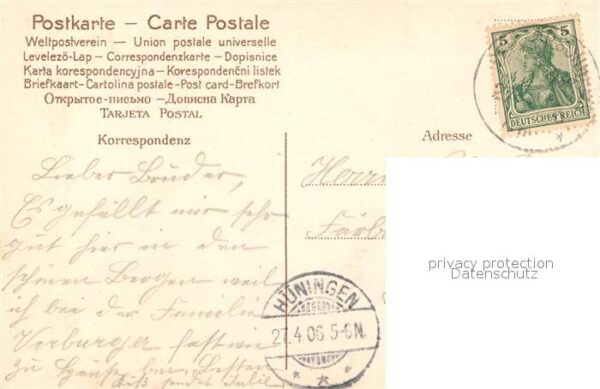 Postkarte – Carte Postale
Weltpostverein – Union postale universelle
Levelező-Lap – Correspondenzkarte – Dopisnice
Karta korespondencyjna – Korespondenčni listek
Briefkaart – Cartolina postale – Post card – Brefkort
Открытое-письмо – Дописна Карта
Tarjeta Postal
5 5
DEUTSCHES REICH
Korrespondenz
Adresse
Lieber Bruder,
Es gefällt mir sehr
gut hier in den
schönen Bergen weil
ich bei der Familie
Vorburger fast wie
zu Hause bin. Besten
Gruß sendet Julie
Herrn
Färb
privacy protection
Datenschutz
HÜNINGEN
27.4.06 5-6N.